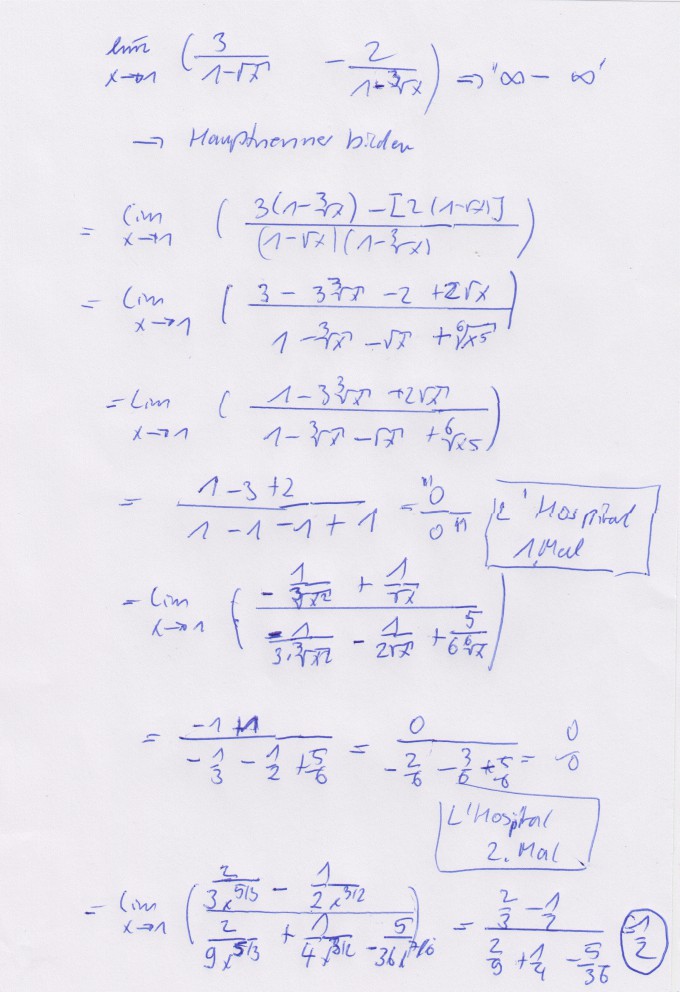 lim x→1 ( 3/(1-√x) - 2/(1-∛x) ) ⇒ "∞ - ∞"
→ Hauptnenner bilden
= lim x→1 ( (3(1-∛x) - [2(1-√x)]) / ((1-√x)(1-∛x)) )
= lim x→1 ( (3 - 3∛x - 2 + 2√x) / (1 - ∛x - √x + ⁶√x5) )
= lim x→1 ( (1 - 3∛x + 2√x) / (1 - ∛x - √x + ⁶√x5) )
= (1-3+2) / (1-1-1+1) = "0/0"
L'Hospital
1.Mal
= lim x→1 ( (-1/∛x2 + 1/√x) / (-1/(3·∛x2) - 1/(2√x) + 5/(6⁶√x)) )
= (-1+1) / (-1/3 - 1/2 + 5/6) = 0 / (-2/6 - 3/6 + 5/6) = 0/0
L'Hospital
2. Mal
= lim x→1 ( (2/(3x^5/3) - 1/(2x^3/2)) / (2/(9x^5/3) + 1/(4x^3/2) - 5/(36x^7/6)) ) = (2/3 - 1/2) / (2/9 + 1/4 - 5/36) = 1/2